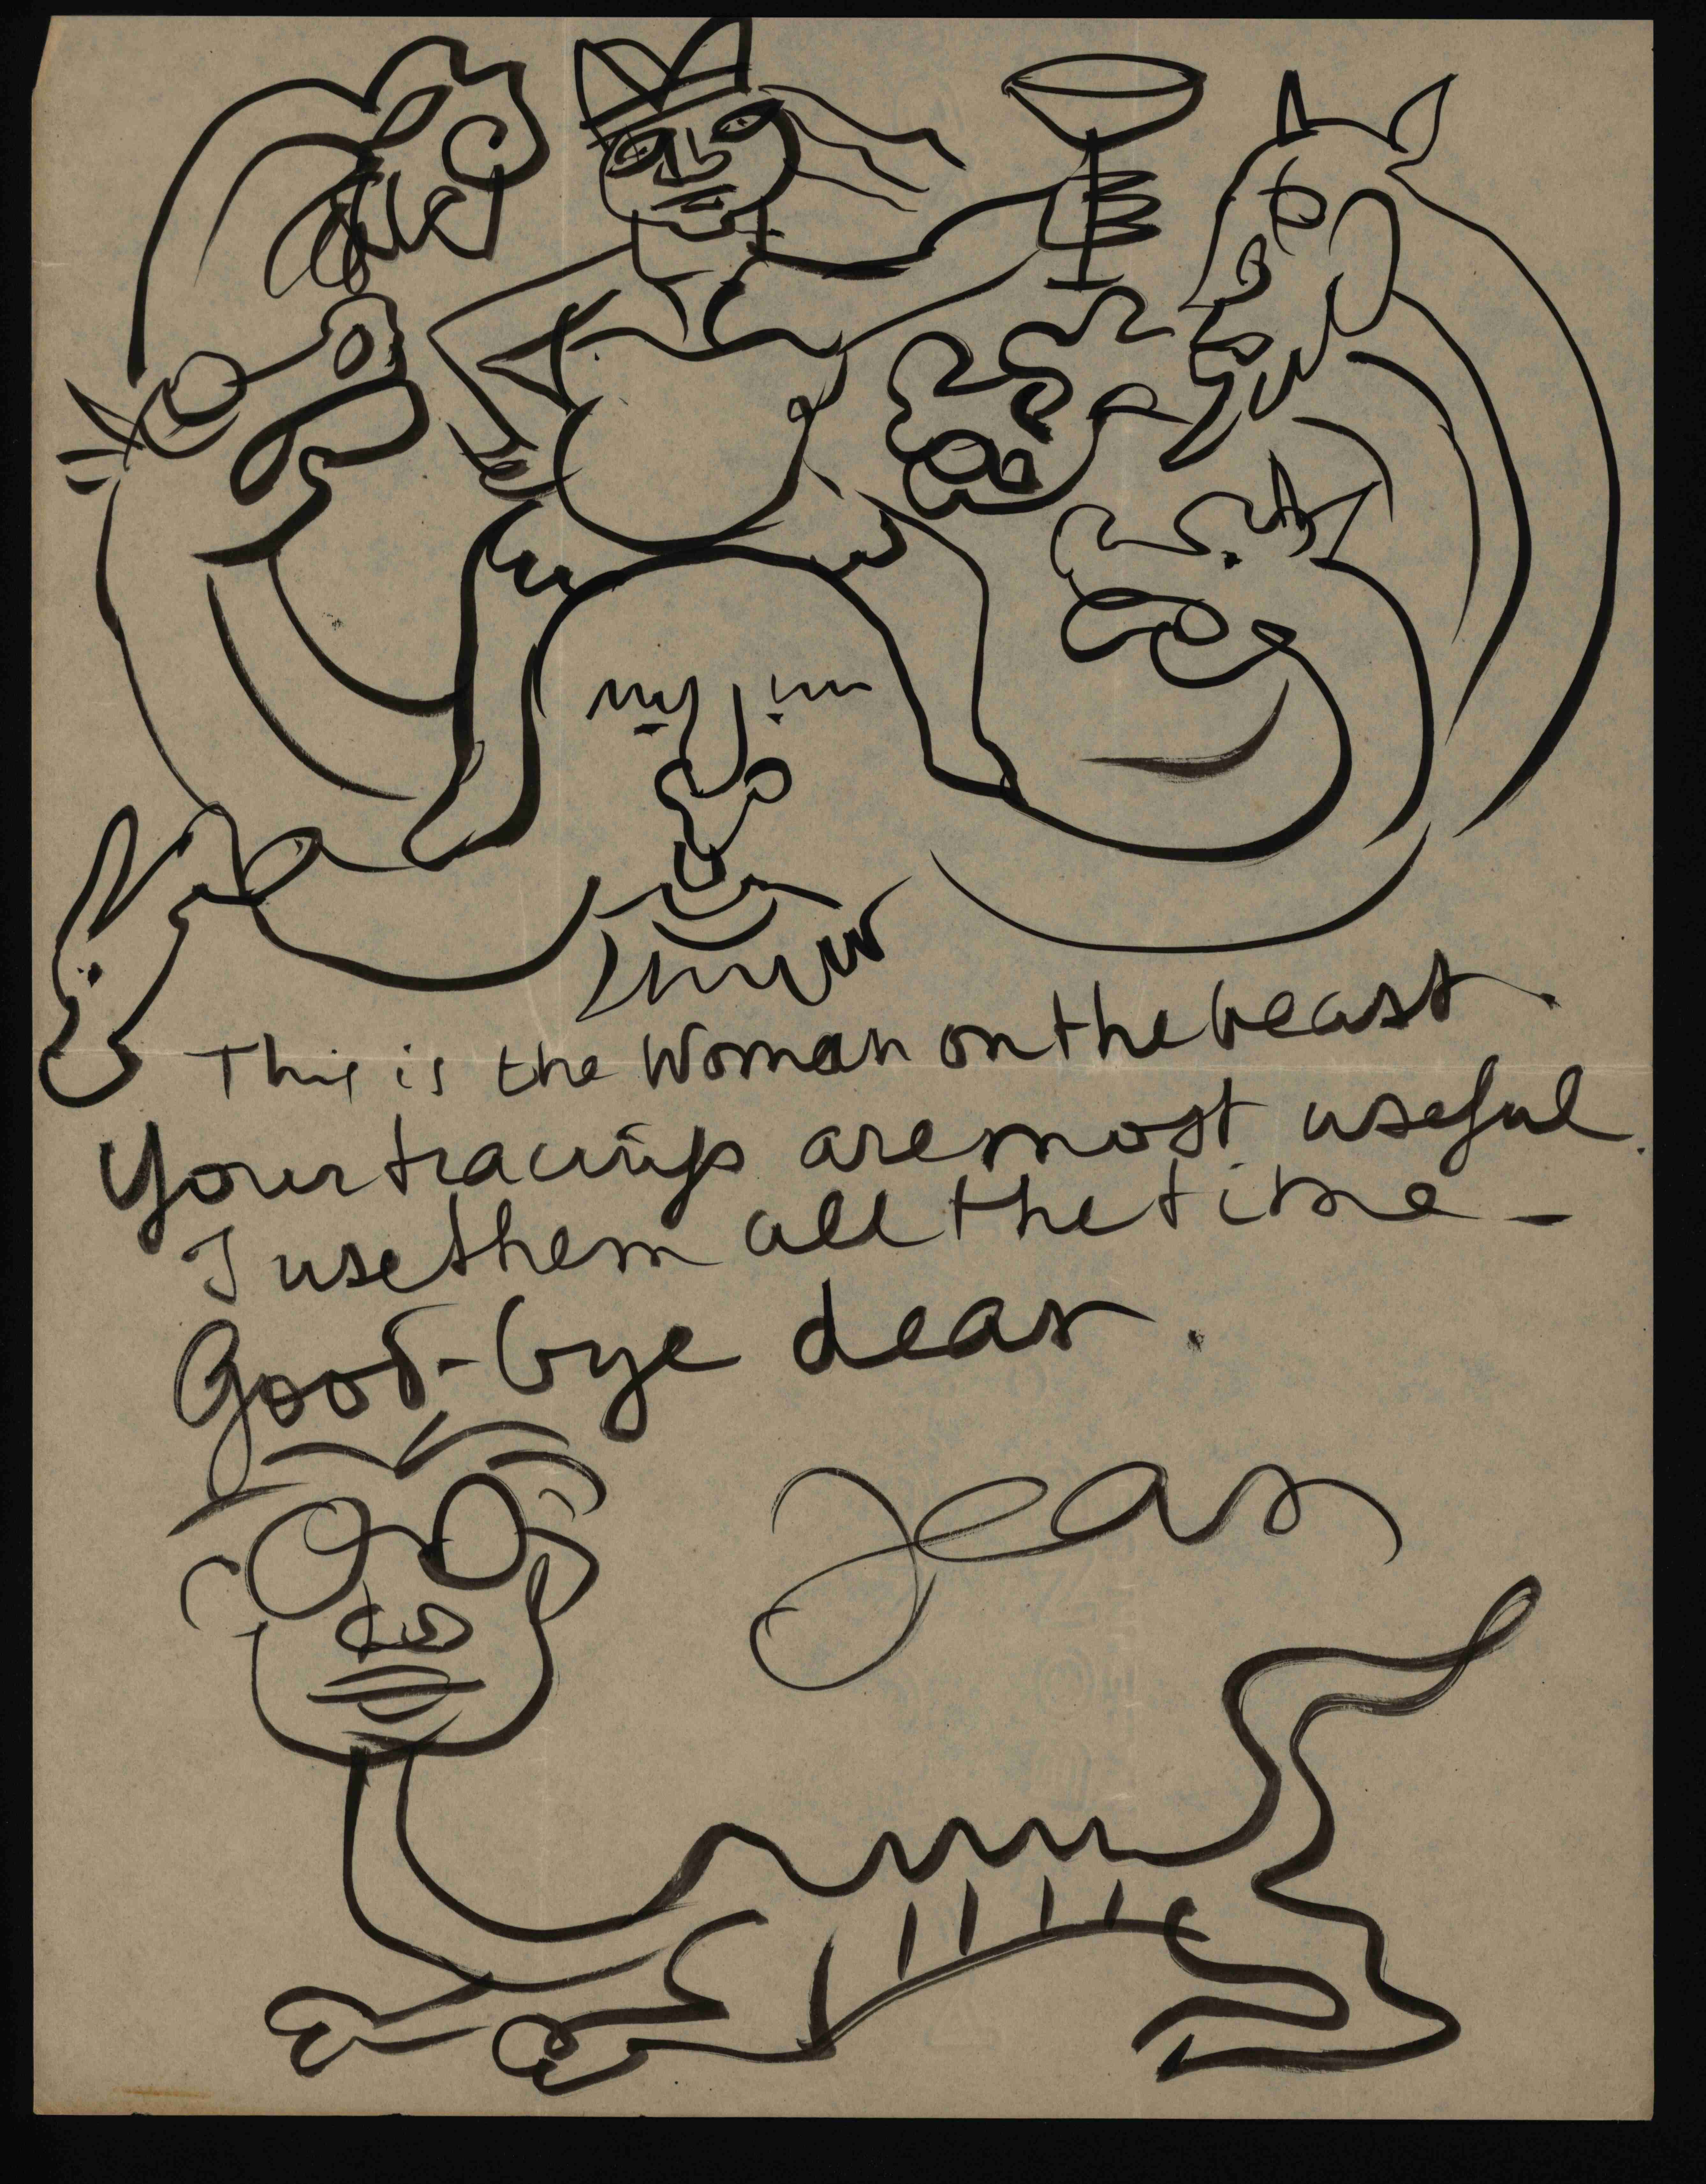 This is the Woman on the beast.
Your tracings are most useful.
I use them all the time –
Good-bye dear.
Jean